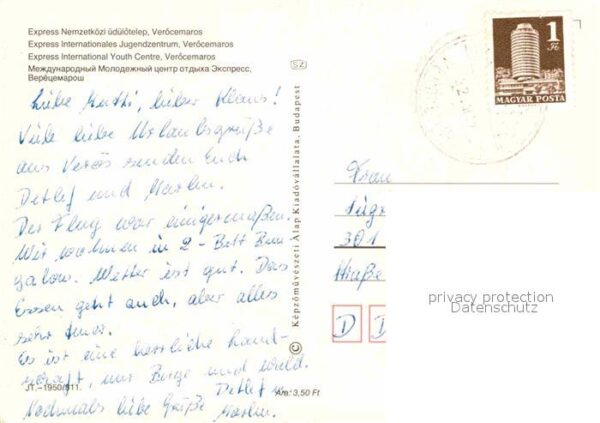 Express Nemzetközi üdülőtelep, Verőcemaros
Express Internationales Jugendzentrum, Verőcemaros
Express International Youth Centre, Verőcemaros
Международный Молодежный центр отдыха Экспресс,
Верёцемарош
Liebe Mutti, lieber Klaus!
Viele liebe Urlaubsgrüße
aus senden Euch
Detlef und Marlin.
Der Flug war einigermaßen.
Wir wohnen in 2-Bett Bun
galow. Wetter ist gut. Das
Essen geht auch, aber alles
sehr teuer.
Es ist eine herrliche Land-
schaft, nur Berge und Wald.
Detlef u.
Nochmals liebe Grüße Marlin.
JT.-1950/811.
Ára: 3,50 Ft
© Képzőművészeti Alap Kiadóvállalata, Budapest
SZ
1 Ft
MAGYAR POSTA
Frau
301
Straße
D D
privacy protection
Datenschutz